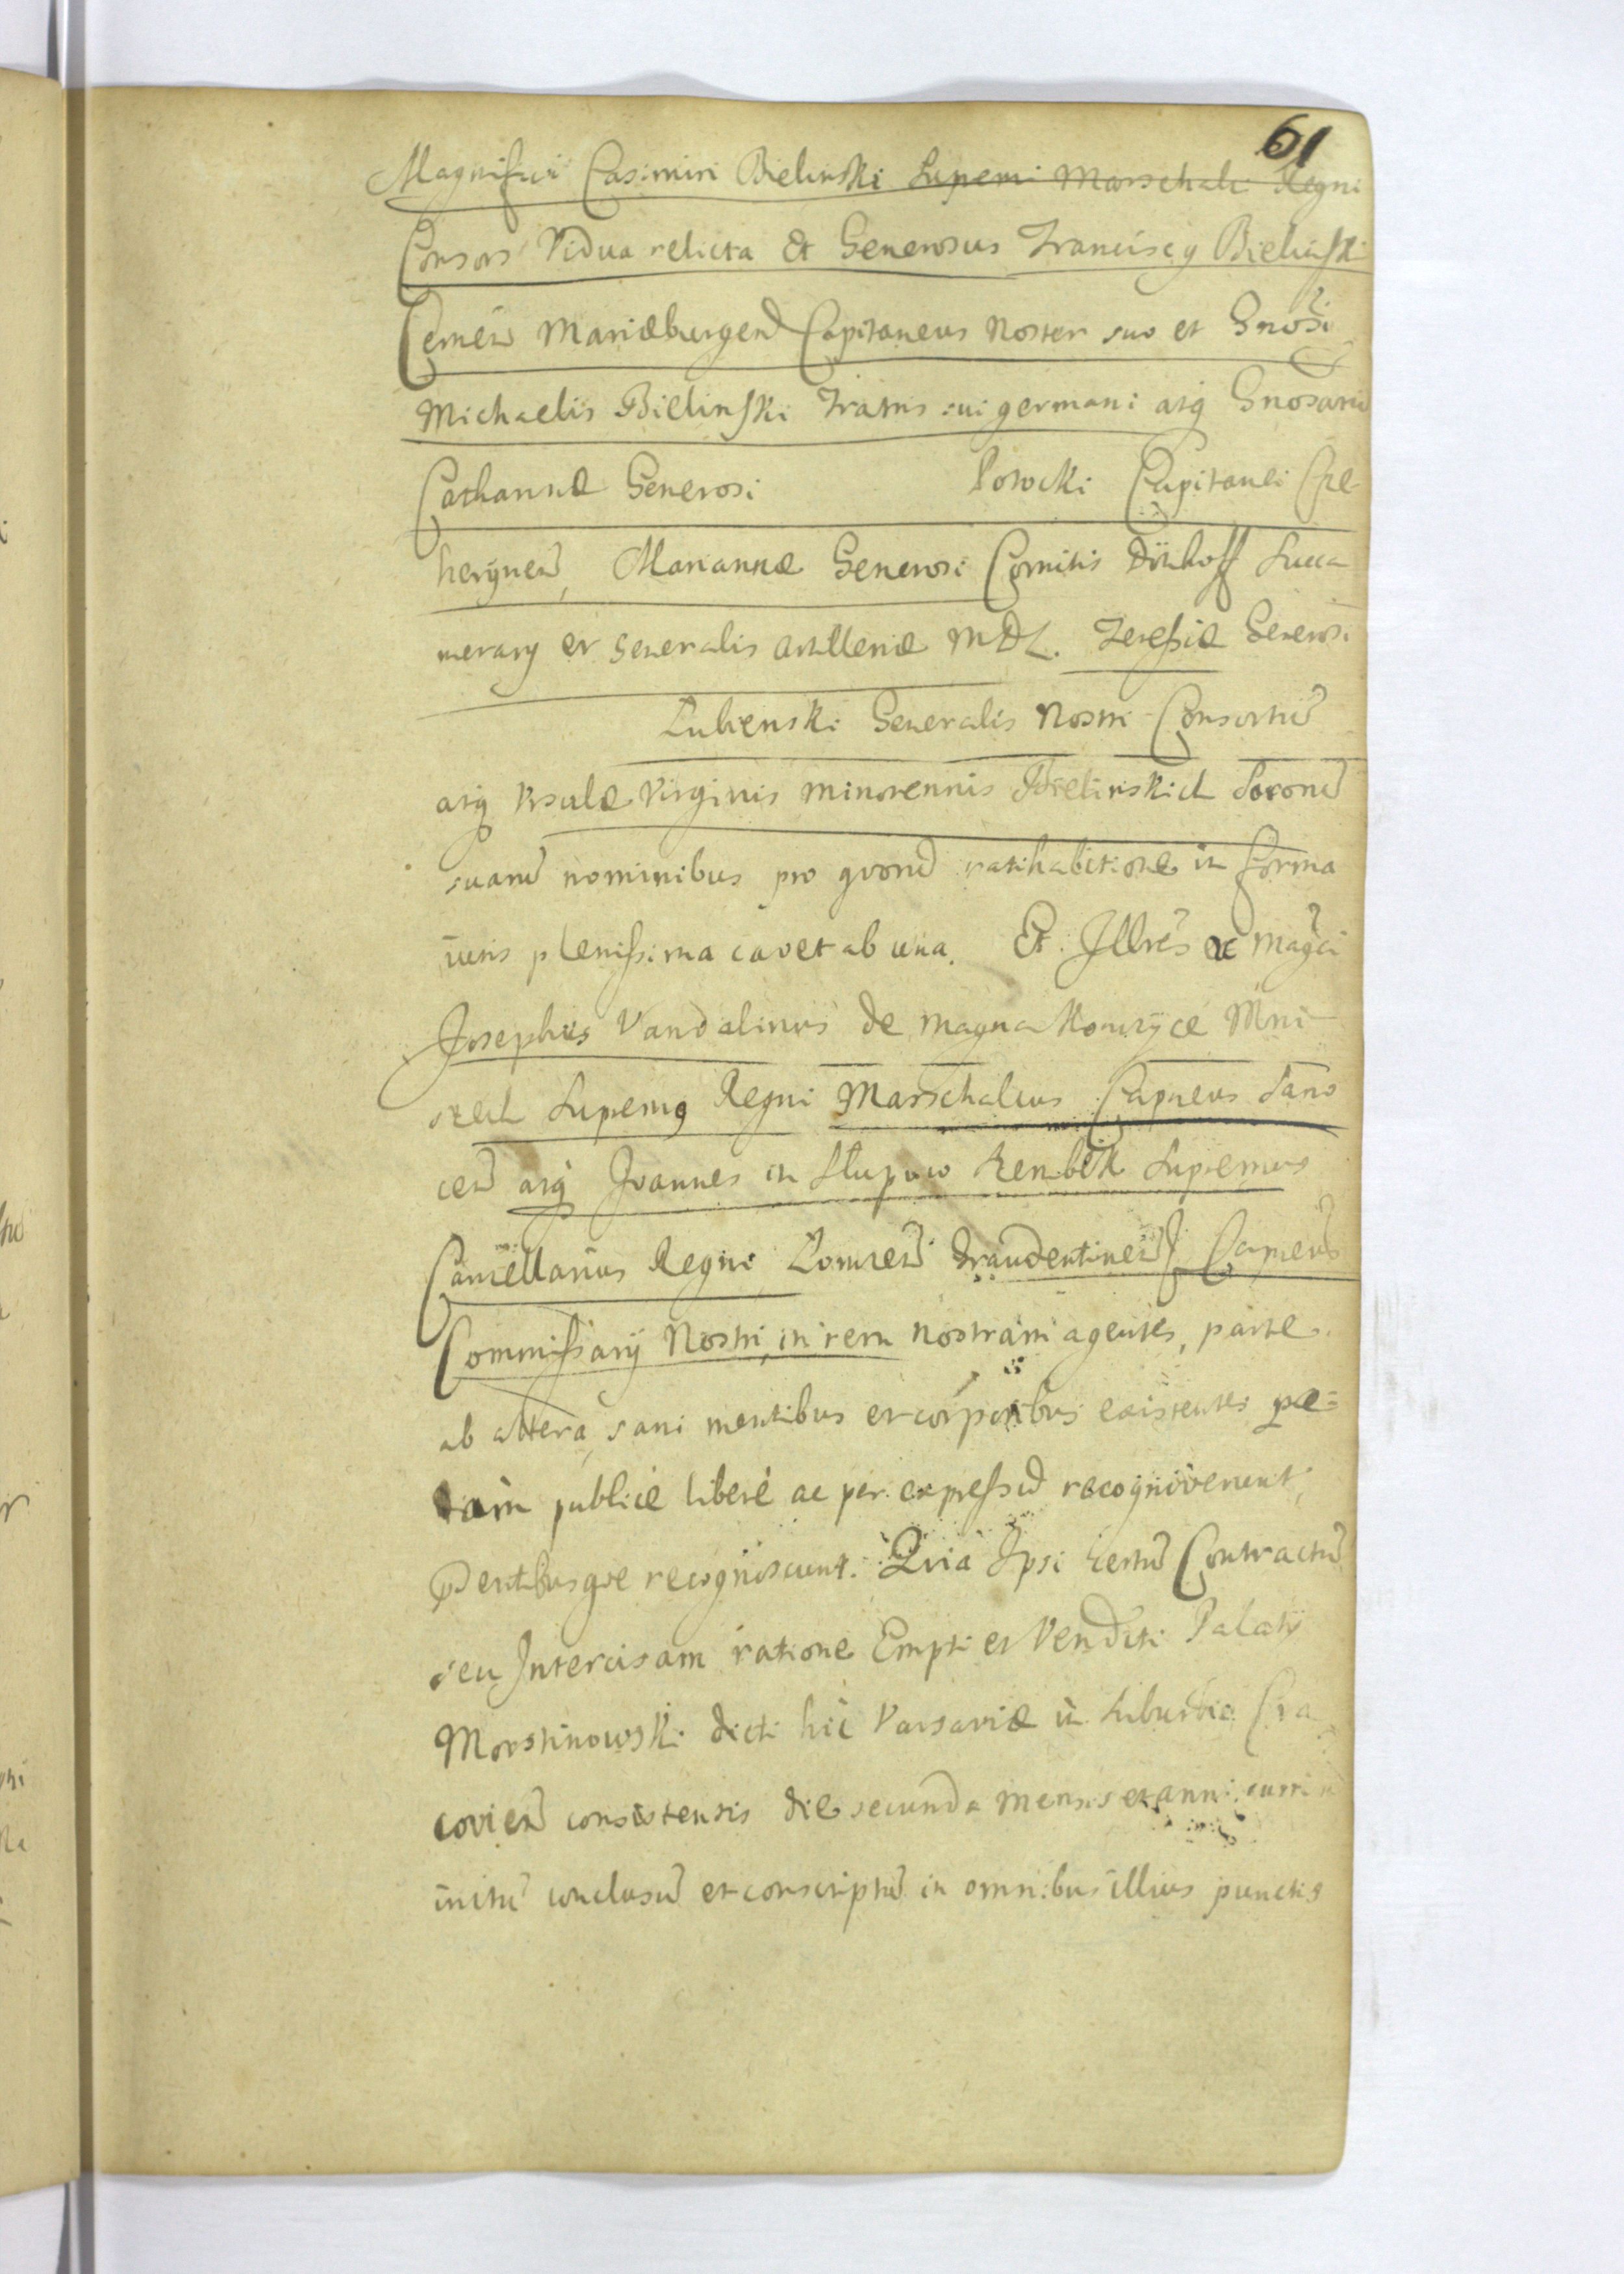 61
Magnifici Casimiri Bielinski Supremi Marschali Regni
Consors Vidua relicta Et Generosus Franciscq Bielinski
Cernen̄ Mariæburgen̄ Capitaneus Noster suo et Gnosi
Michaelis Bielinski Fratris sui germani atq Gnosarū
Catharinæ Generosi Potocki Capitanei Cze-
herynen̄, Mariannæ Generosi Comitis Dönhoff Succa
merarij et Generalis Artilleriæ MDL. Teressiæ Generosi
Lubienski Generalis Nostri Consortiū
atq Vrsulæ Virginis minorennis Bielinskich Sororū
suarū nominibus pro quorū ratihabitione in forma
iuris plenissima cavet ab una. Et Illres ac Magci
Josephus Vandalinus de magna Konczyce Mni-
szech Supremq Regni Marschalcus Capneus Sano
cen̄ atq Joannes in Słupow Szembek Supremus
Cancellarius Regni Lomzen̄ Graudentinen̄ Capneus
Commissarij Nostri, in rem nostram agentes, parte
ab altera, sani mentibus et corporibus existentes pa=
lam publice libere ac per expressū recognoverunt,
ꝓsentibusque recognoscunt. Quia Ipsi certū Contractū
seu Intercisam ratione Empti et Venditi Palatij
Morstinowski dicti hic Varsaviæ in Suburbio Cra
covien̄ consistensis die secunda mensis et anni curren̄
initū conclusū et conscriptū in omnibus illius punctis